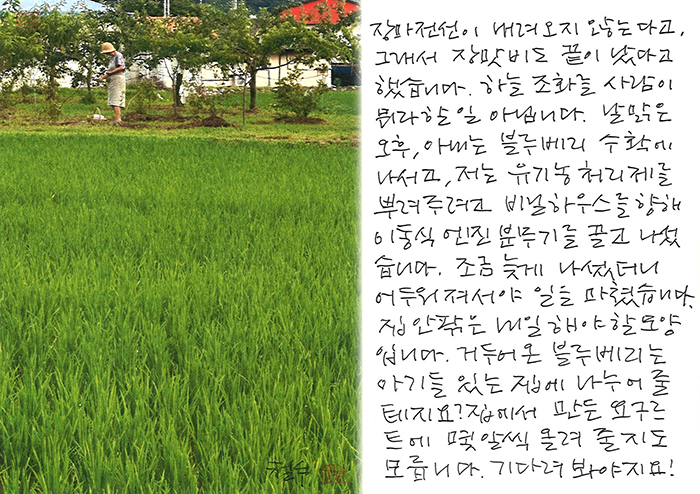 장마전선이 내려오지 않는다고,
그래서 장맛비도 끝이 났다고
했습니다. 하늘 조화를 사람이
뭐라할 일 아닙니다. 날 맑은
오후, 아내는 블루베리 수확에
나서고, 저는 유기농처리제를
뿌려주려고 비닐하우스를 향해
이동식 엔진 분무기를 끌고 나섰
습니다. 조금 늦게 나섰더니
어두워져서야 일을 마쳤습니다.
집 안팎은 내일 해야 할 모양
입니다. 거두어 온 블루베리는
아기들 있는 집에 나누어 줄
테지요? 집에서 만든 요구르
트에 몇 알씩 올려 줄지도
모릅니다. 기다려 봐야지요!
철수